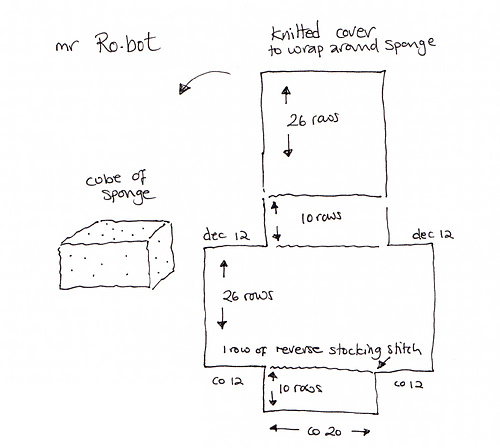 mr Ro.bot
knitted cover
to wrap around sponge
26 rows
cube of
sponge
10 rows
dec 12
dec 12
26 rows
1 row of reverse stocking stitch
co 12
10 rows
co 12
co 20